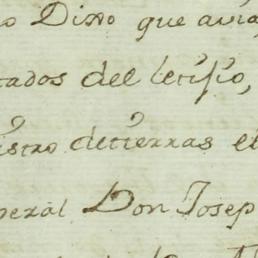 o Dixo que avia
tados del letixio,
istro detierras el
neral Don Josep